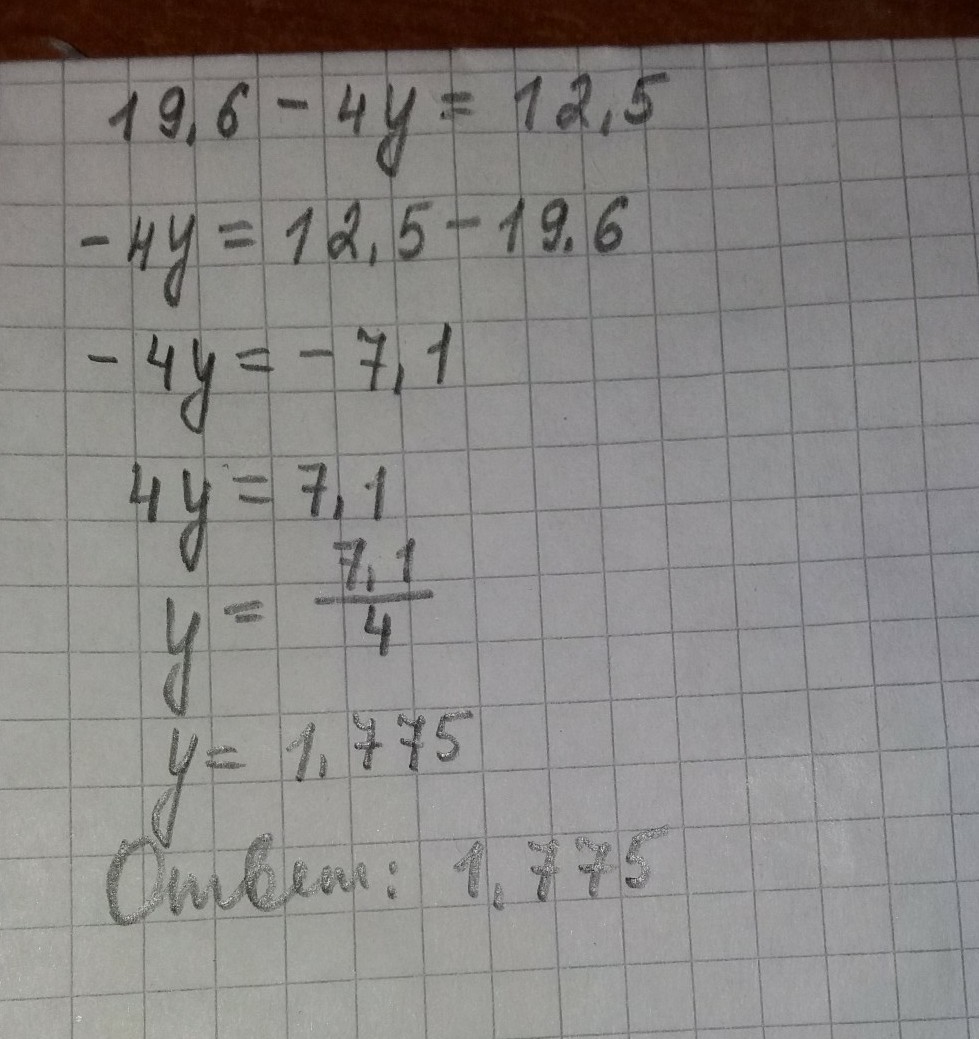 19,6 - 4y = 12,5
-4y = 12,5 - 19.6
-4y = -7,1
4y = 7,1
y = 7,1/4
y = 1,775
Ответ: 1,775